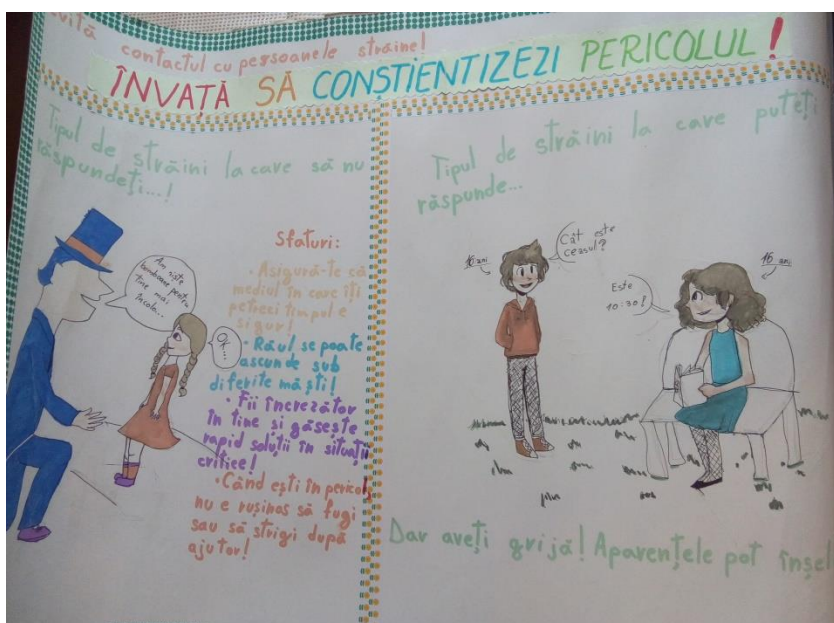 evită contactul cu persoanele străine!
ÎNVAȚĂ SĂ CONȘTIENTIZEZI PERICOLUL!
Tipul de străini la care să nu
răspundeți...!
Am niște
bomboane pentru
tine mai
încolo...
Ok
...
Sfaturi:
• Asigură-te că
mediul în care îți
petreci timpul e
sigur!
• Răul se poate
ascunde sub
diferite măști!
• Fii încrezător
în tine si găsește
rapid soluții în situații
critice!
• Când ești în pericol,
nu e rușinos să fugi
sau să strigi după
ajutor!
Tipul de străini la care puteți
răspunde...
16 ani
Cât este
ceasul?
16 ani
Este
10:30!
Dar aveți grijă! Aparențele pot înșel